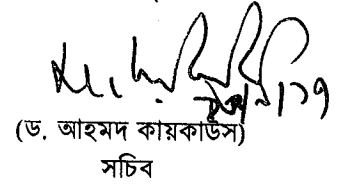 (ড. আহমদ কায়কাউস)
সচিব